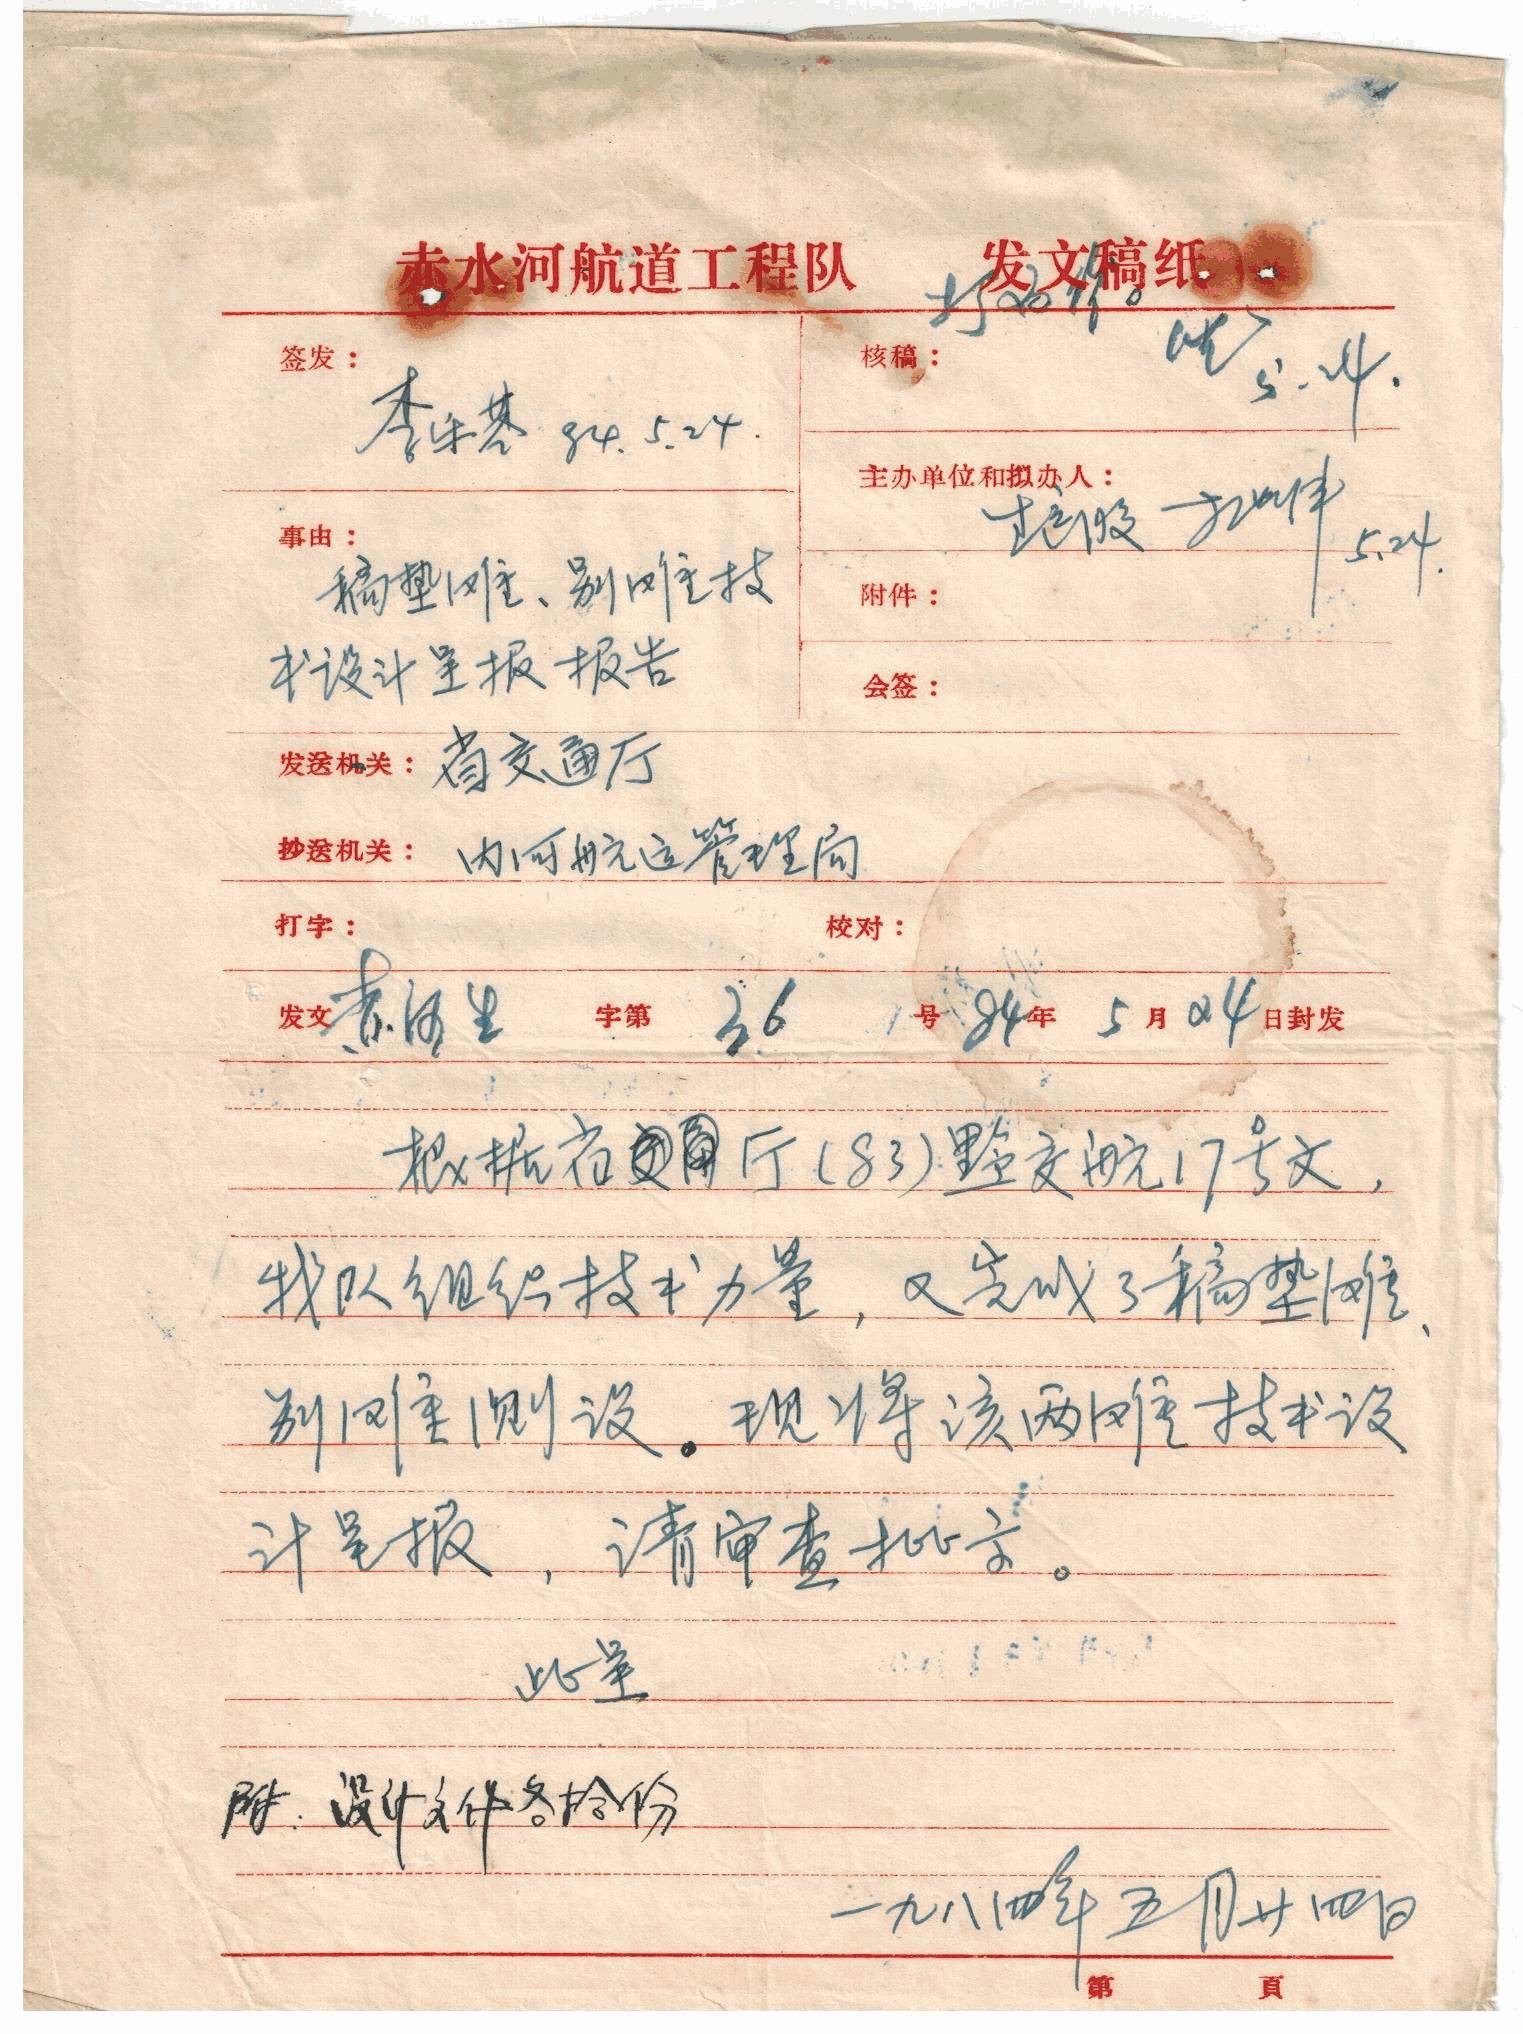 赤水河航道工程队 发文稿纸
签发：
李乐基 84.5.24.
核稿：
5.24.
主办单位和拟办人：
5.24.
事由：
稿垫滩、别滩技
术设计呈报报告
附件：
会签：
发送机关： 省交通厅
抄送机关： 内河航运管理局
打字： 校对：
发文 赤河 字第 36 号 84年 5月24日封发
根据省交通厅(83)黔交航17号文，
我队组织技术力量，又完成了稿垫滩、
别滩测设。现将该两滩技术设
计呈报，请审查批示。
此呈
附：设计文件各拾份
一九八四年五月廿四日
第 頁